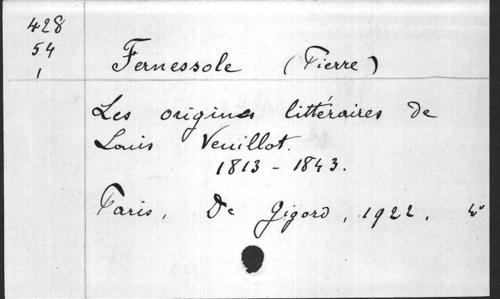 428
54
1
Fernessole (Pierre)
Les origines littéraires de
Louis Veuillot.
1813 - 1843.
Paris, De Gigord, 1922.